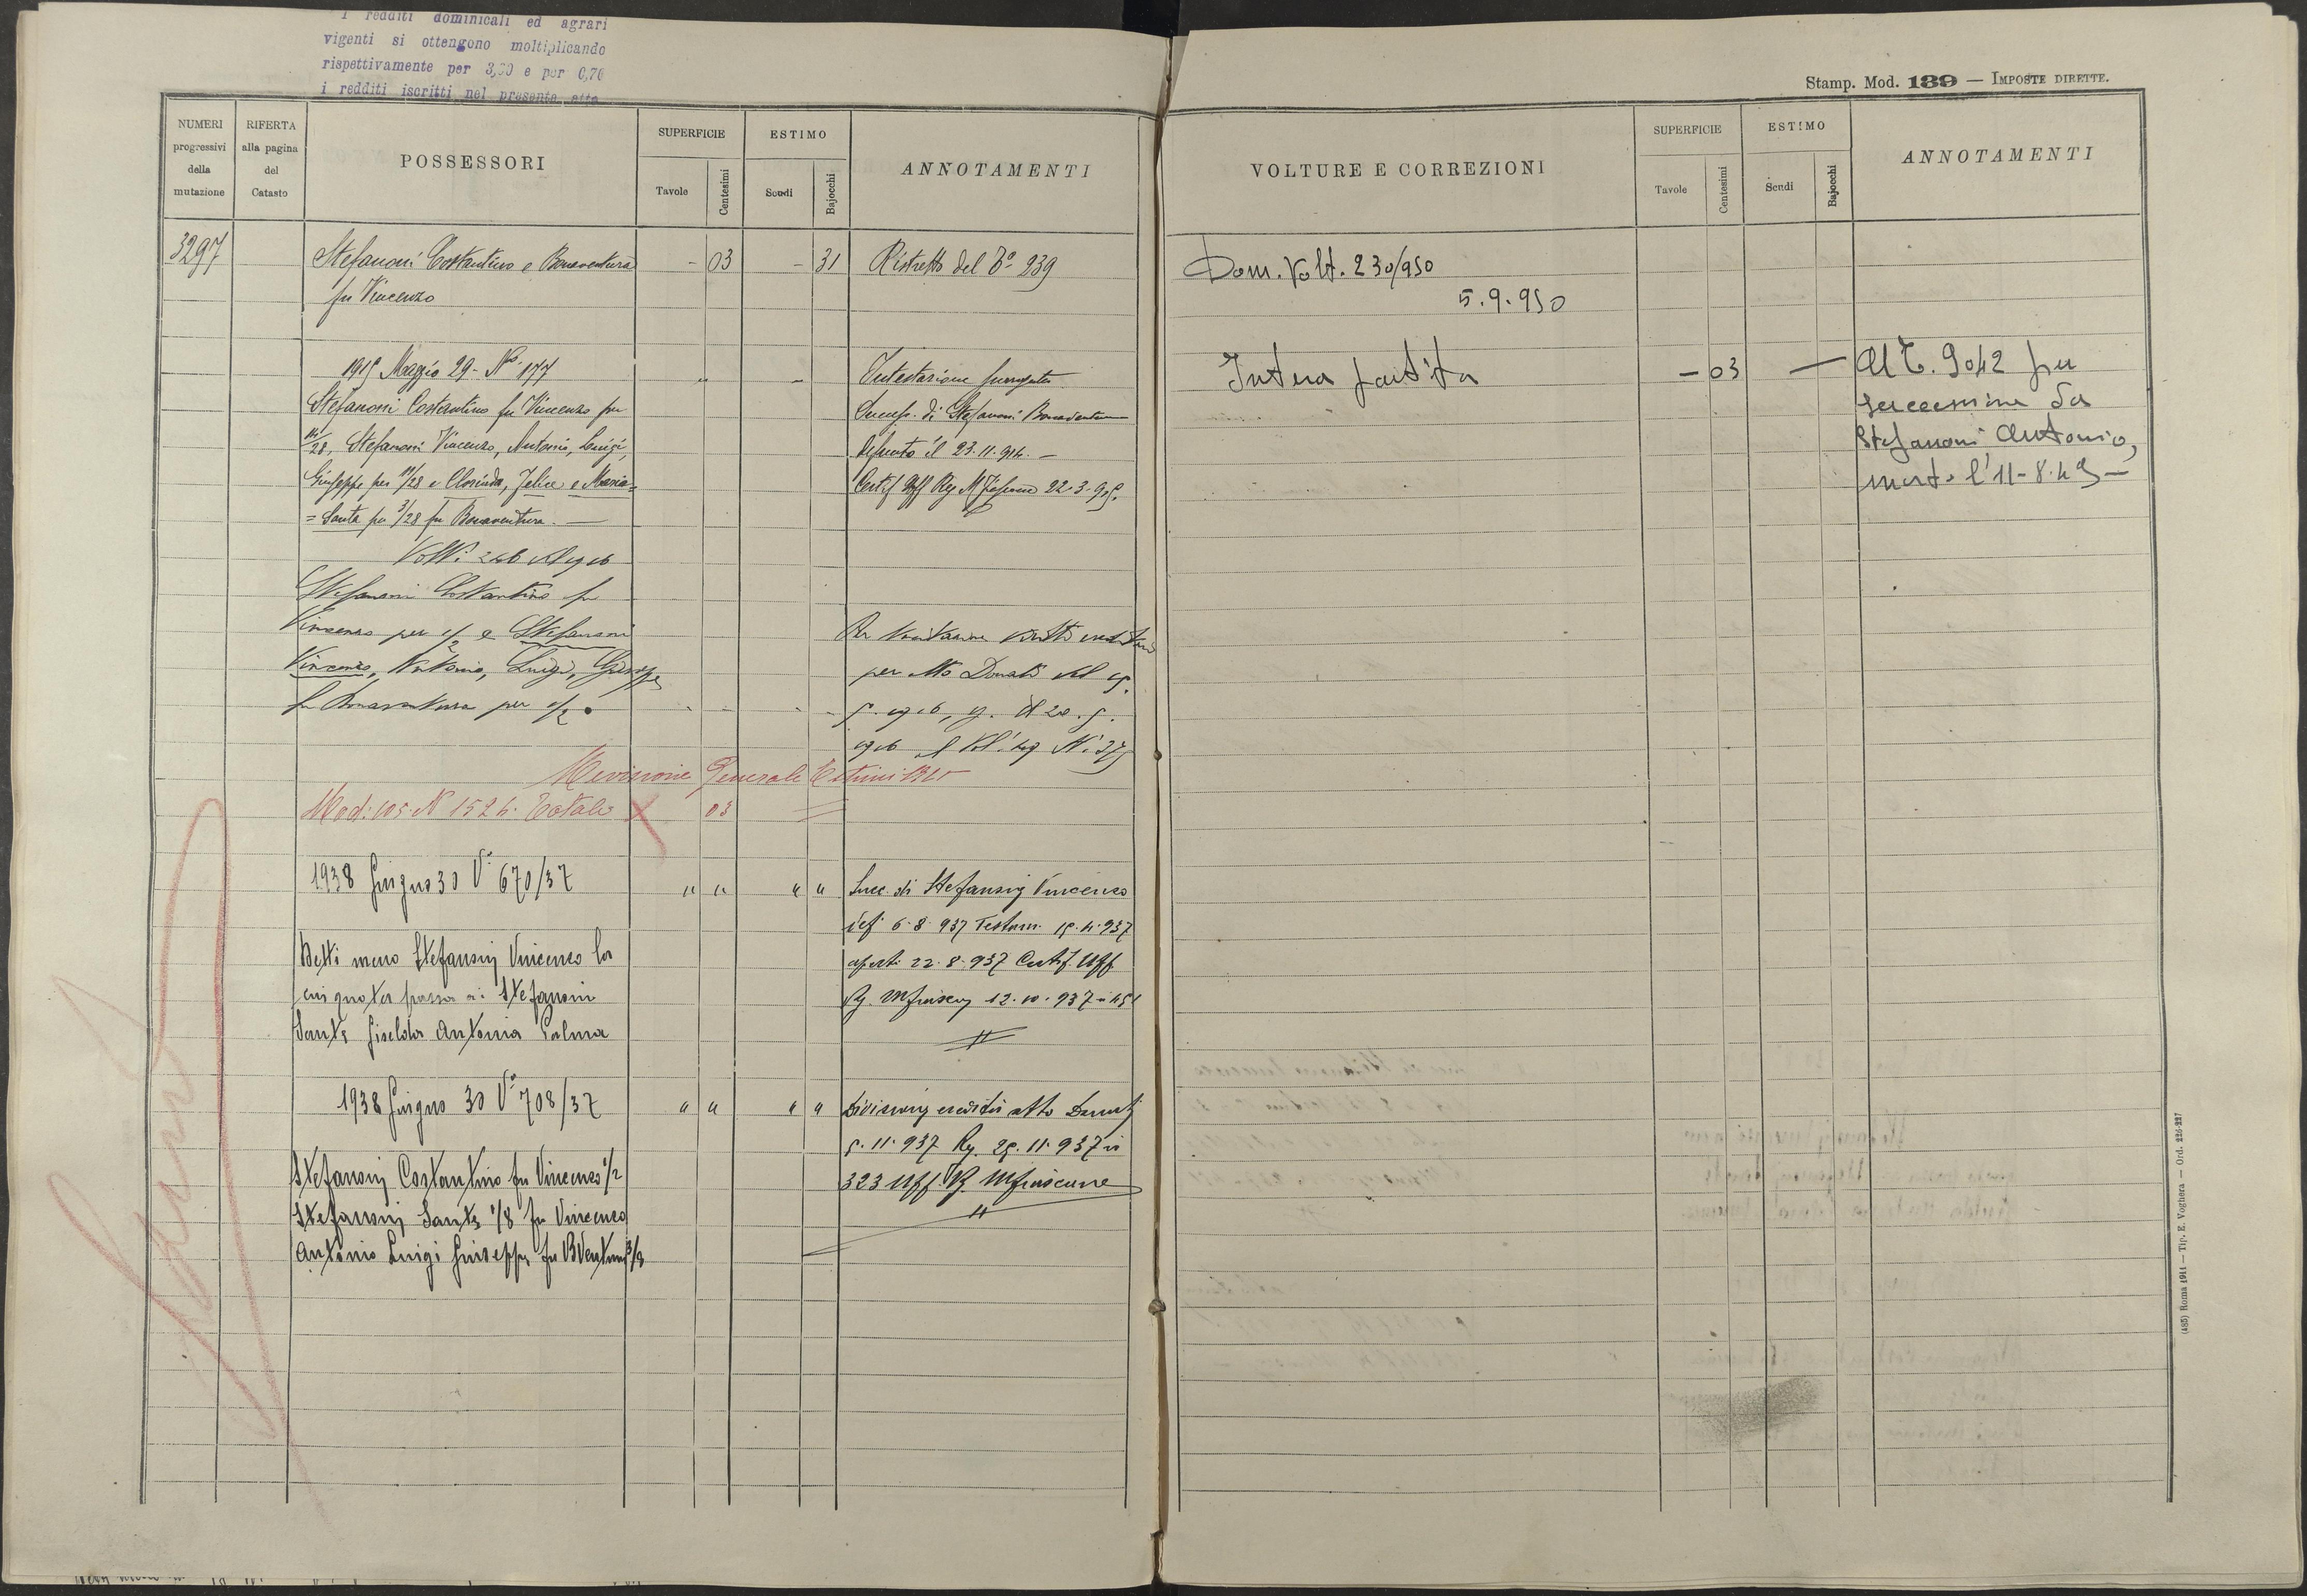 I redditi dominicali ed agrari
vigenti si ottengono moltiplicando
rispettivamente per 3,30 e per 0,76
i redditi iscritti nel presente atto
Stamp. Mod. 139 — IMPOSTE DIRETTE.
NUMERI progressivi della mutazione
RIFERTA alla pagina del Catasto
POSSESSORI
SUPERFICIE
Tavole
Centesimi
ESTIMO
Scudi
Bajocchi
ANNOTAMENTI
VOLTURE E CORREZIONI
SUPERFICIE
Tavole
Centesimi
ESTIMO
Scudi
Bajocchi
ANNOTAMENTI
3297 Stefanoni Costantino e Bonaventura - 03 - 31 Ristretto del T° 239
fu Vincenzo
1915 Maggio 29 - N° 177
Stefanoni Costantino fu Vincenzo per
14/28, Stefanoni Vincenzo, Antonio, Luigi,
Giuseppe per 11/28 e Clorinda, Felice e Maria=
=Santa per 3/28 fu Bonaventura. —
Intestazione
Success. di Stefanoni Bonaventura
defunto il 23.11.914. —
Certif Uff Reg Mfiascone 22-3-915.
Stefanoni Costantino fu
Vincenzo per 1/2 e Stefanoni
Vincenzo, Antonio, Luigi, Giuseppe
fu Bonaventura per 1/2
per atto Donati
Revisione Generale Estimi
Mod: 105. N 1524. Totale 03
1938 Giugno 30 V° 670/37 " " " "
Detti meno Stefanoni Vincenzo la
cui quota passa ai Stefanoni
Santi Giselda Antonia Palma
Succ. di Stefanoni Vincenzo
def 6.8.937 Testam. 15.4.937
aperto 22.8.937 Certif. Uff
Rg. Mfiascon 12.10.937
1938 Giugno 30 V° 708/37 " " " "
Stefanoni Costantino fu Vincenzo 1/2
Stefanoni Santi 1/8 fu Vincenzo
Antonio Luigi Giuseppe fu BVentura 3/8
Divisione eredità atto Donati
5.11.937 Rg. 25.11.937 n
323 Uff. Rg. Mfiascone
Dom. Volt. 230/950
5.9.950
Intera partita - 03 —
Al T. 9042 per
successione da
Stefanoni Antonio,
morto l'11-8-49 —
(485) Roma 1911 — Tip. E. Voghera — Ord. 226-227